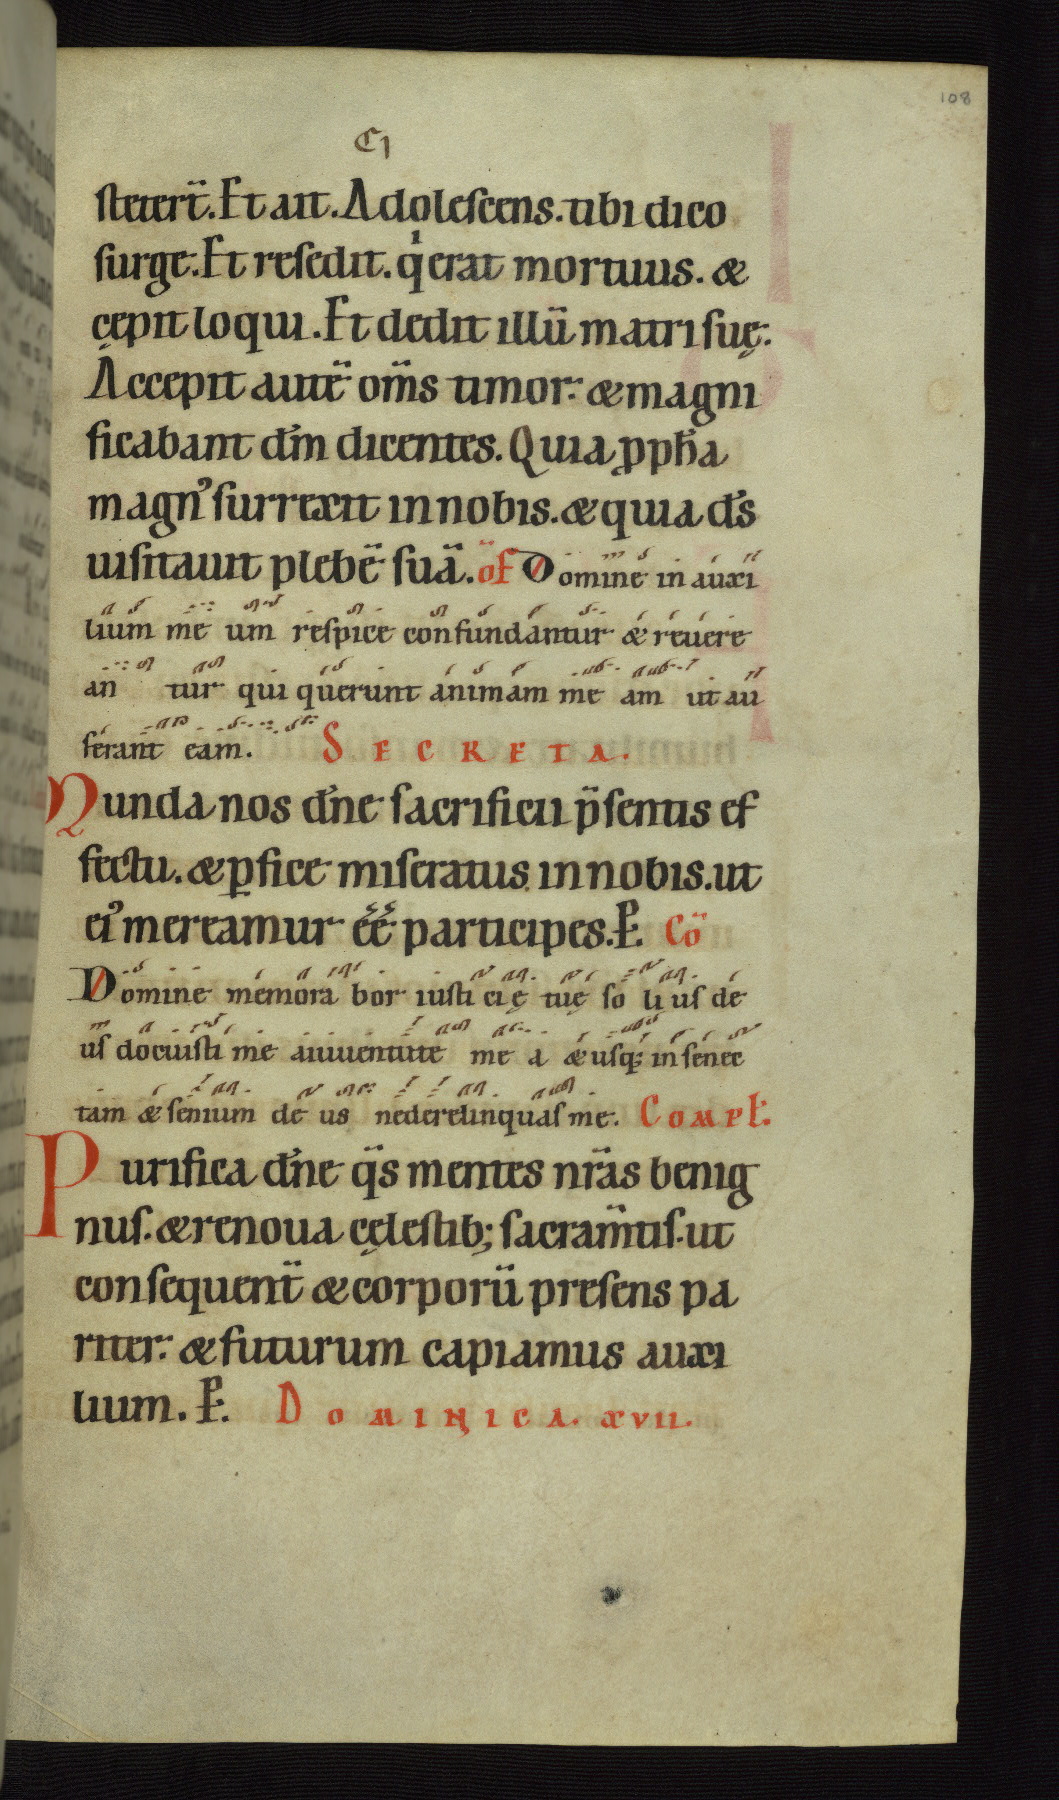 108
CI
steter̄t. Et ait. Adolescens. tibi dico
surge. Et resedit. qͥ erat mortuus. &
cepit loqui. Et dedit illū matri suę.
Accepit autē om̄s timor. & magni
ficabant dm̄ dicentes. Quia ꝓph̄a
magnꝰ surrexit in nobis. & quia ds̄
uisitauit plebē suā. of̄ Domine in auxi
lium me um respice confundantur & reuere
an tur qui querunt animam me am ut au
ferant eam. SECRETA.
Munda nos dn̄e sacrificii p̄sentis ef
fectu. & ꝑfice miseratus in nobis. ut
eiꝰ mereamur ēē participes. P. Cō
Domine memora bor iusti cię tuę so li us de
us docuisti me a iuuentute me a & usq; in senec
tam & senium de us ne derelinquas me. Compl.
Purifica dn̄e qs̄ mentes nr̄as benig
nus. & renoua cęlestib; sacram̄tis. ut
consequent̄ & corporū presens pa
riter. & futurum capiamus auxi
lium. P. DOMINICA. XVII.